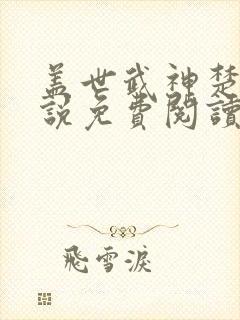 盖世武神楚
說免費閱讀
飛雪淚